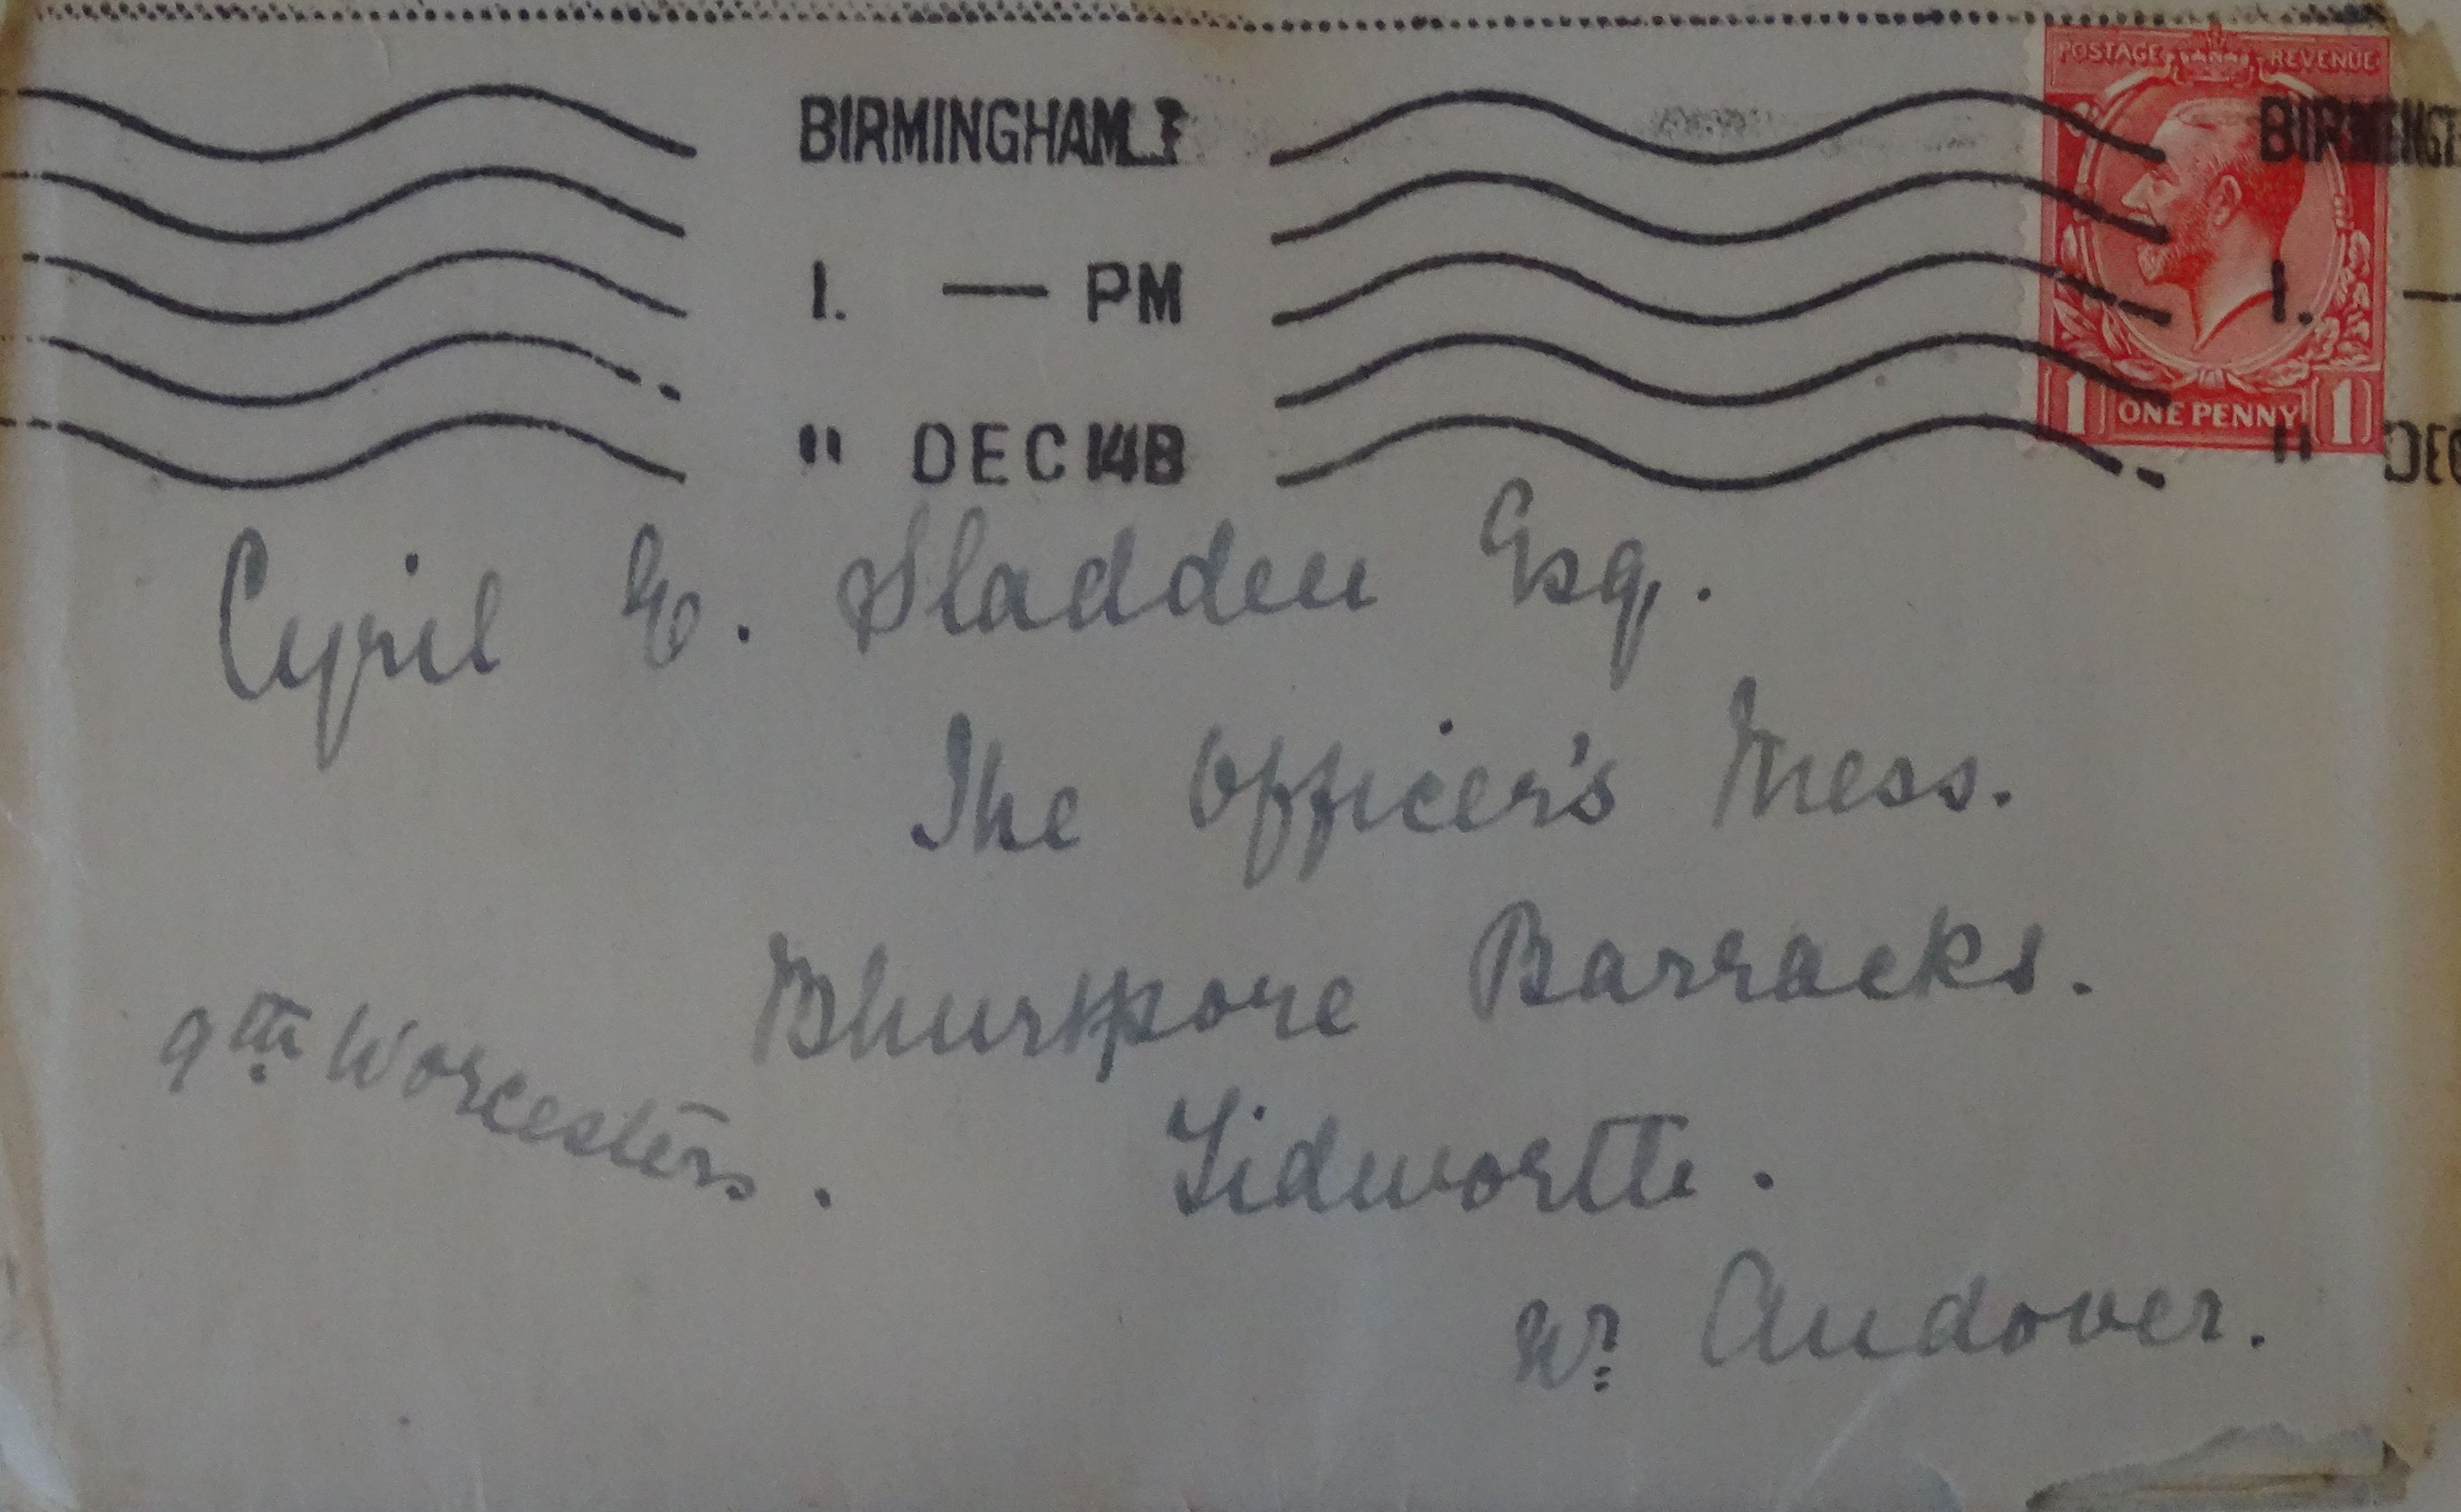 POSTAGE REVENUE
BIRMINGHAM
1. — PM
" DEC 14 B
1.
" DEC
1 ONE PENNY 1
Cyril E. Sladden Esq.
The Officer's Mess.
Bhurtpore Barracks.
9th Worcesters.
Tidworth.
Nr Andover.